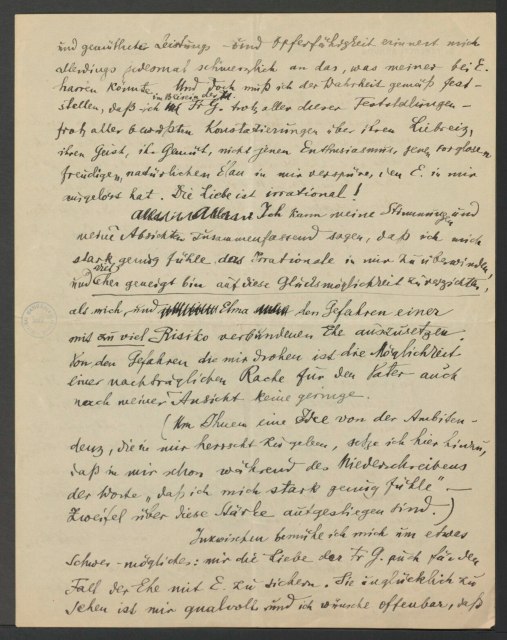 und gemütliche Leistungs- und Opferfähigkeit erinnert mich
allerdings jedesmal schmerzlich an das, was meiner bei E.
harren könnte. Und doch muß ich der Wahrheit gemäß fest-
stellen, daß ich in Bezug der Fr G. trotz aller dieser Feststellungen –
trotz aller bewußten Konstatierungen über ihren Liebreiz,
ihren Geist, ihr Gemüt, nicht jenen Enthusiasmus, jenen sorglosen
freudigen, natürlichen Elan in mir verspüre, den E. in mir
ausgelöst hat. Die Liebe ist irrational!
Ich kann meine Stimmungen und
meine Absichten zusammenfassend sagen, daß ich mich
stark genug fühle das Irrationale in mir zu überwinden,
und viel eher geneigt bin auf diese Glücksmöglichkeit zu verzichten,
als mich, und Elma den Gefahren einer
mit zu viel Risiko verbundenen Ehe auszusetzen.
Von den Gefahren die mir drohen ist die Möglichkeit
einer nachträglichen Rache für den Vater auch
nach meiner Ansicht keine geringe.
(Um Ihnen eine Idee von der Ambiten-
denz, die in mir herrscht zu geben, setze ich hier hinzu,
daß in mir schon während des Niederschreibens
der Worte „daß ich mich stark genug fühle" –
Zweifel über diese Stärke aufgestiegen sind.)
Inzwischen bemühe ich mich um etwas
Schwer-mögliches: mir die Liebe der Fr G. auch für den
Fall der Ehe mit E. zu sichern. Sie unglücklich zu
sehen ist mir qualvoll und ich wünsche offenbar, daß